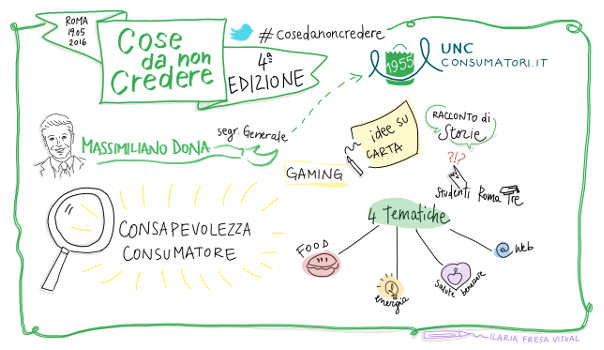 ROMA
19.05
2016
COSE
da non
CREDERE
4ª
EDIZIONE
#cosedanoncredere
1955
UNC
CONSUMATORI.IT
MASSIMILIANO DONA
segr. Generale
GAMING
idee su
CARTA
RACCONTO di
Storie
?!?
Studenti Roma Tre
CONSAPEVOLEZZA
CONSUMATORE
4 Tematiche
FOOD
energia
salute benessere
@ web
ILARIA FRESA VISUAL